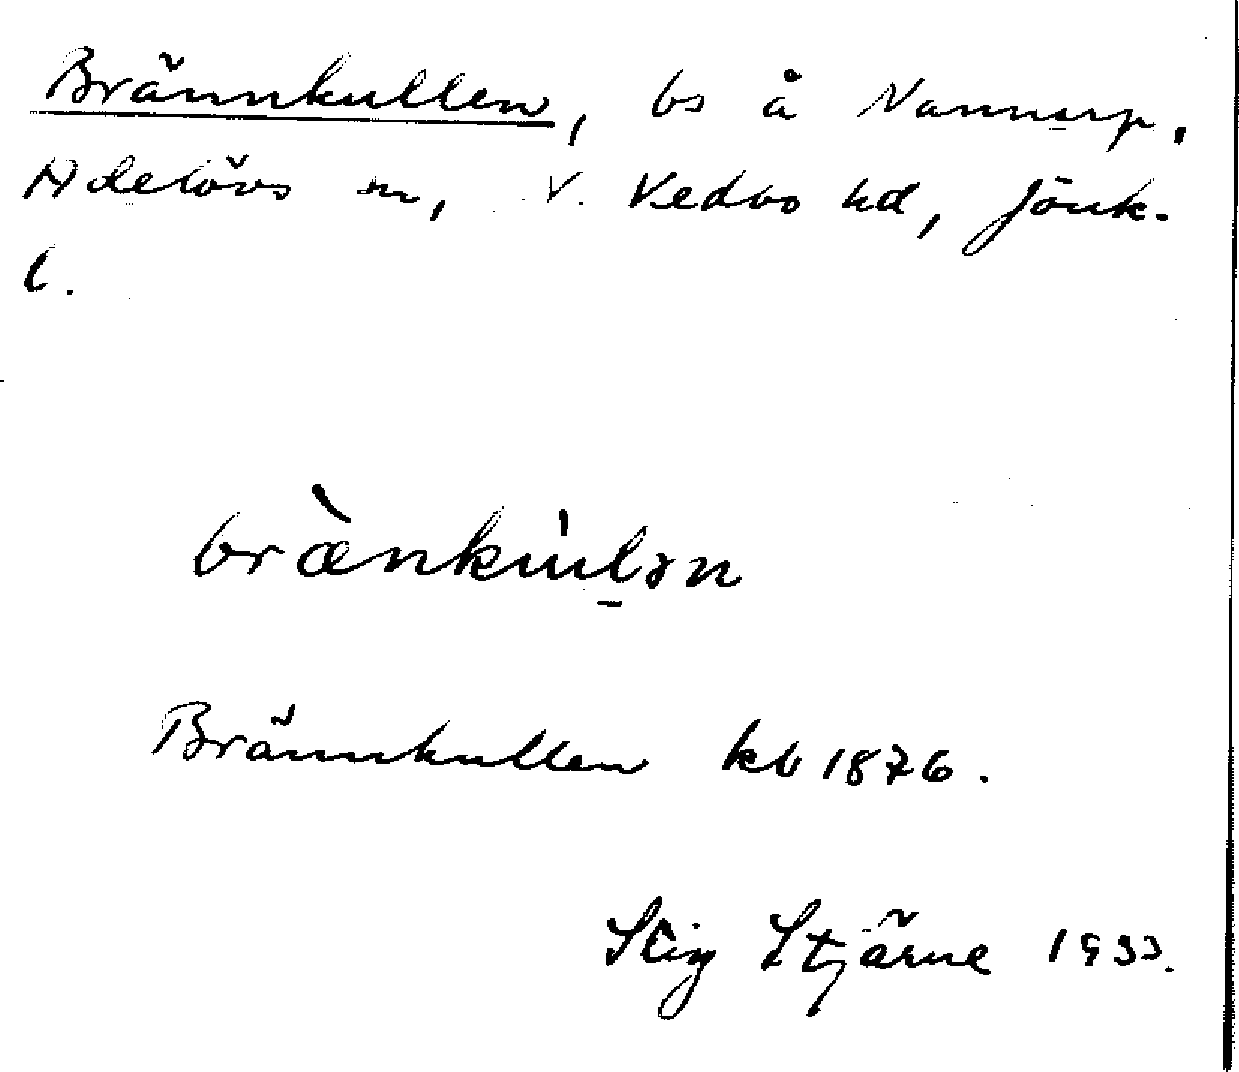 Brännkullen, bs å Nannarp,
Adelövs sn, V. Vedbo hd, Jönk.
l.
brænkulən
Brännkullen kb 1876.
Stig Stjärne 1933.